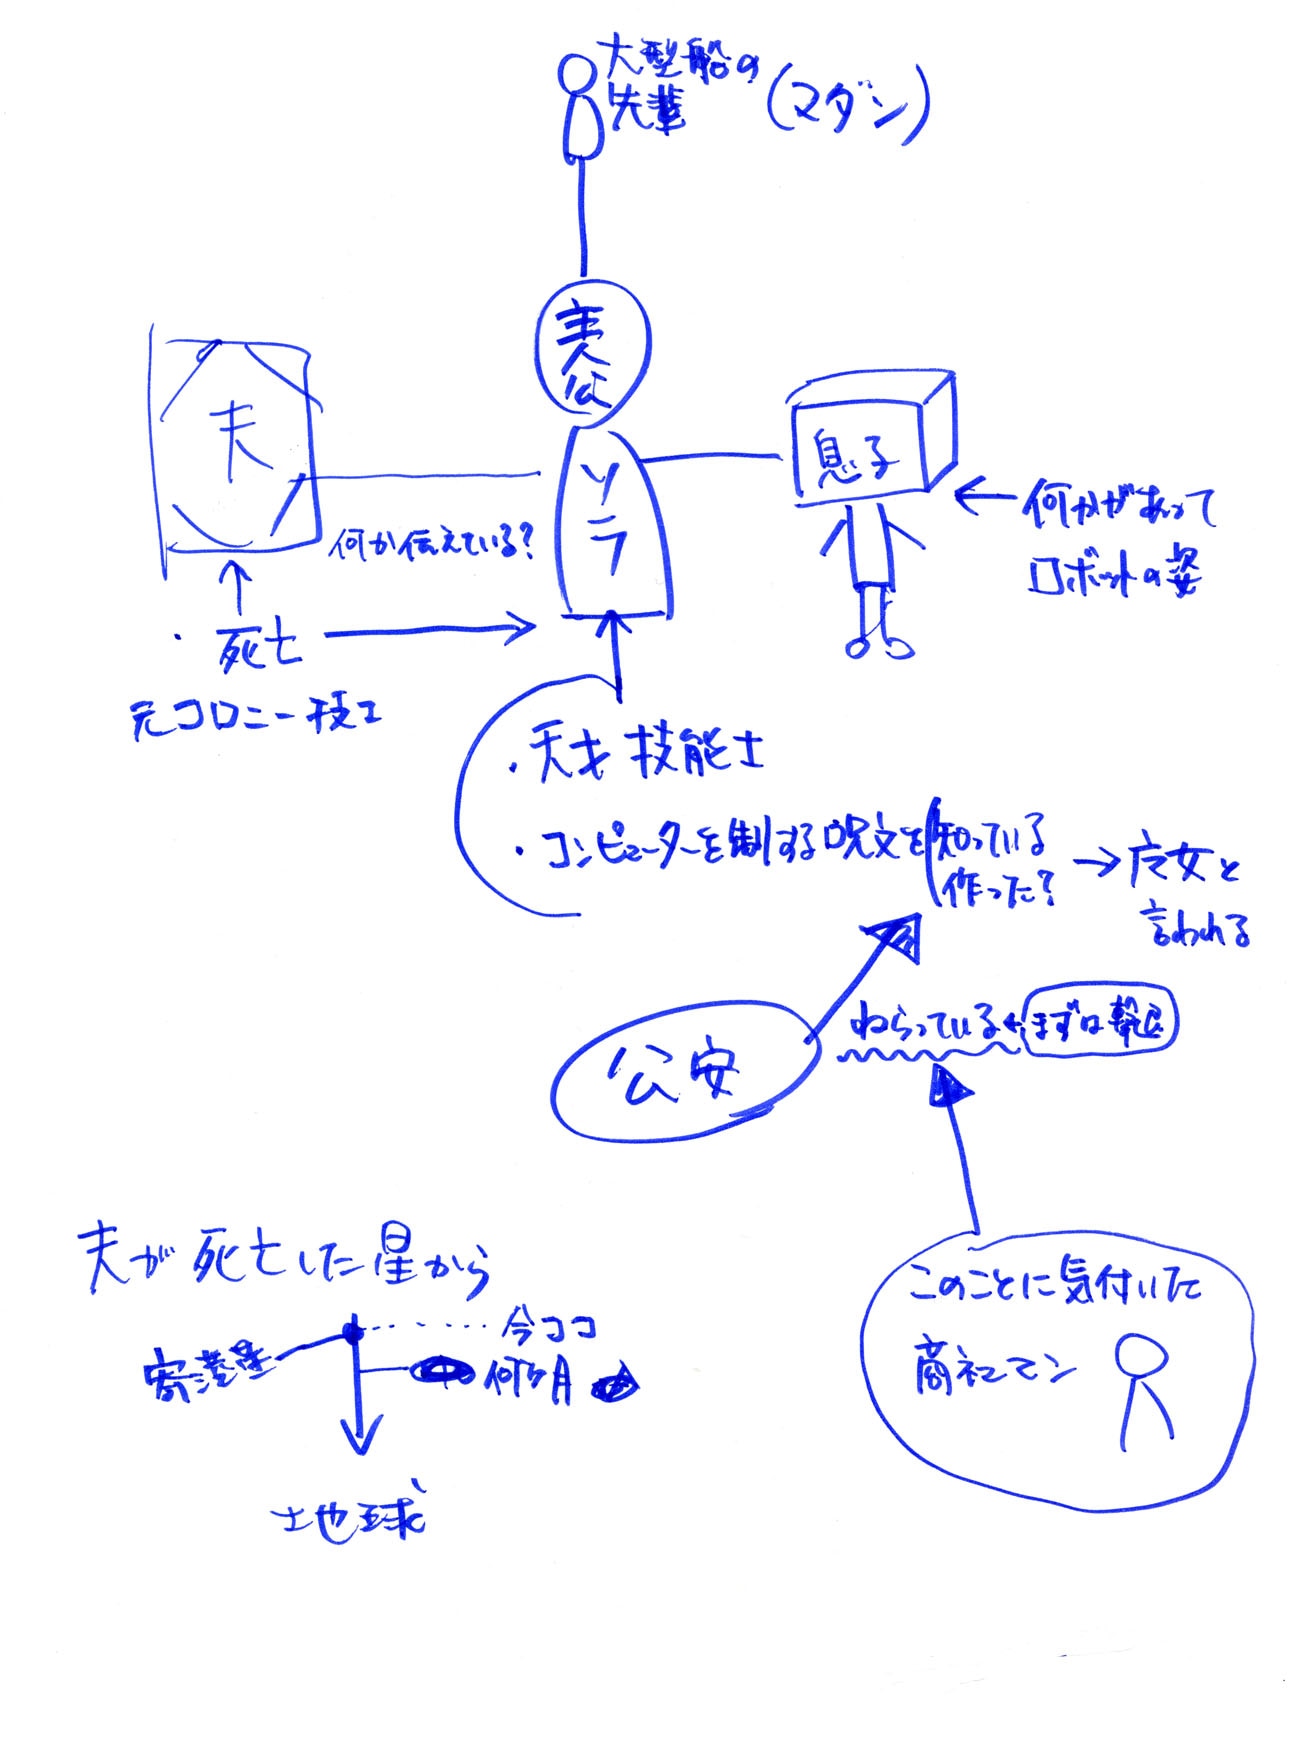 大型船の
先輩
(マダン)
主人公
ソラ
夫
息子
何か伝えている?
何かがあって
ロボットの姿
・死亡
元コロニー技工
・天才技能士
・コンピューターを制する呪文を
知っている
作った?
→ 魔女と
言われる
公安
ねらっている
まずは
このことに気付いた
商社マン
夫が死亡した星から
今ココ
寄港星
何ヶ月
地球